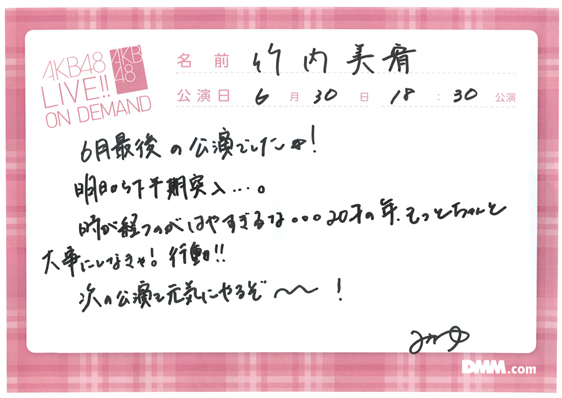 AKB48
LIVE!!
ON DEMAND
AKB
48
名前 竹内美宥
公演日 6月30日 18:30 公演
6月最後の公演でした☆!
明日から下半期突入…。
時が経つのがはやすぎるな。。。20才の年、もっとちゃんと
大事にしなきゃ!行動!!
次の公演も元気にやるぞ〜〜!
みゆ
DMM.com